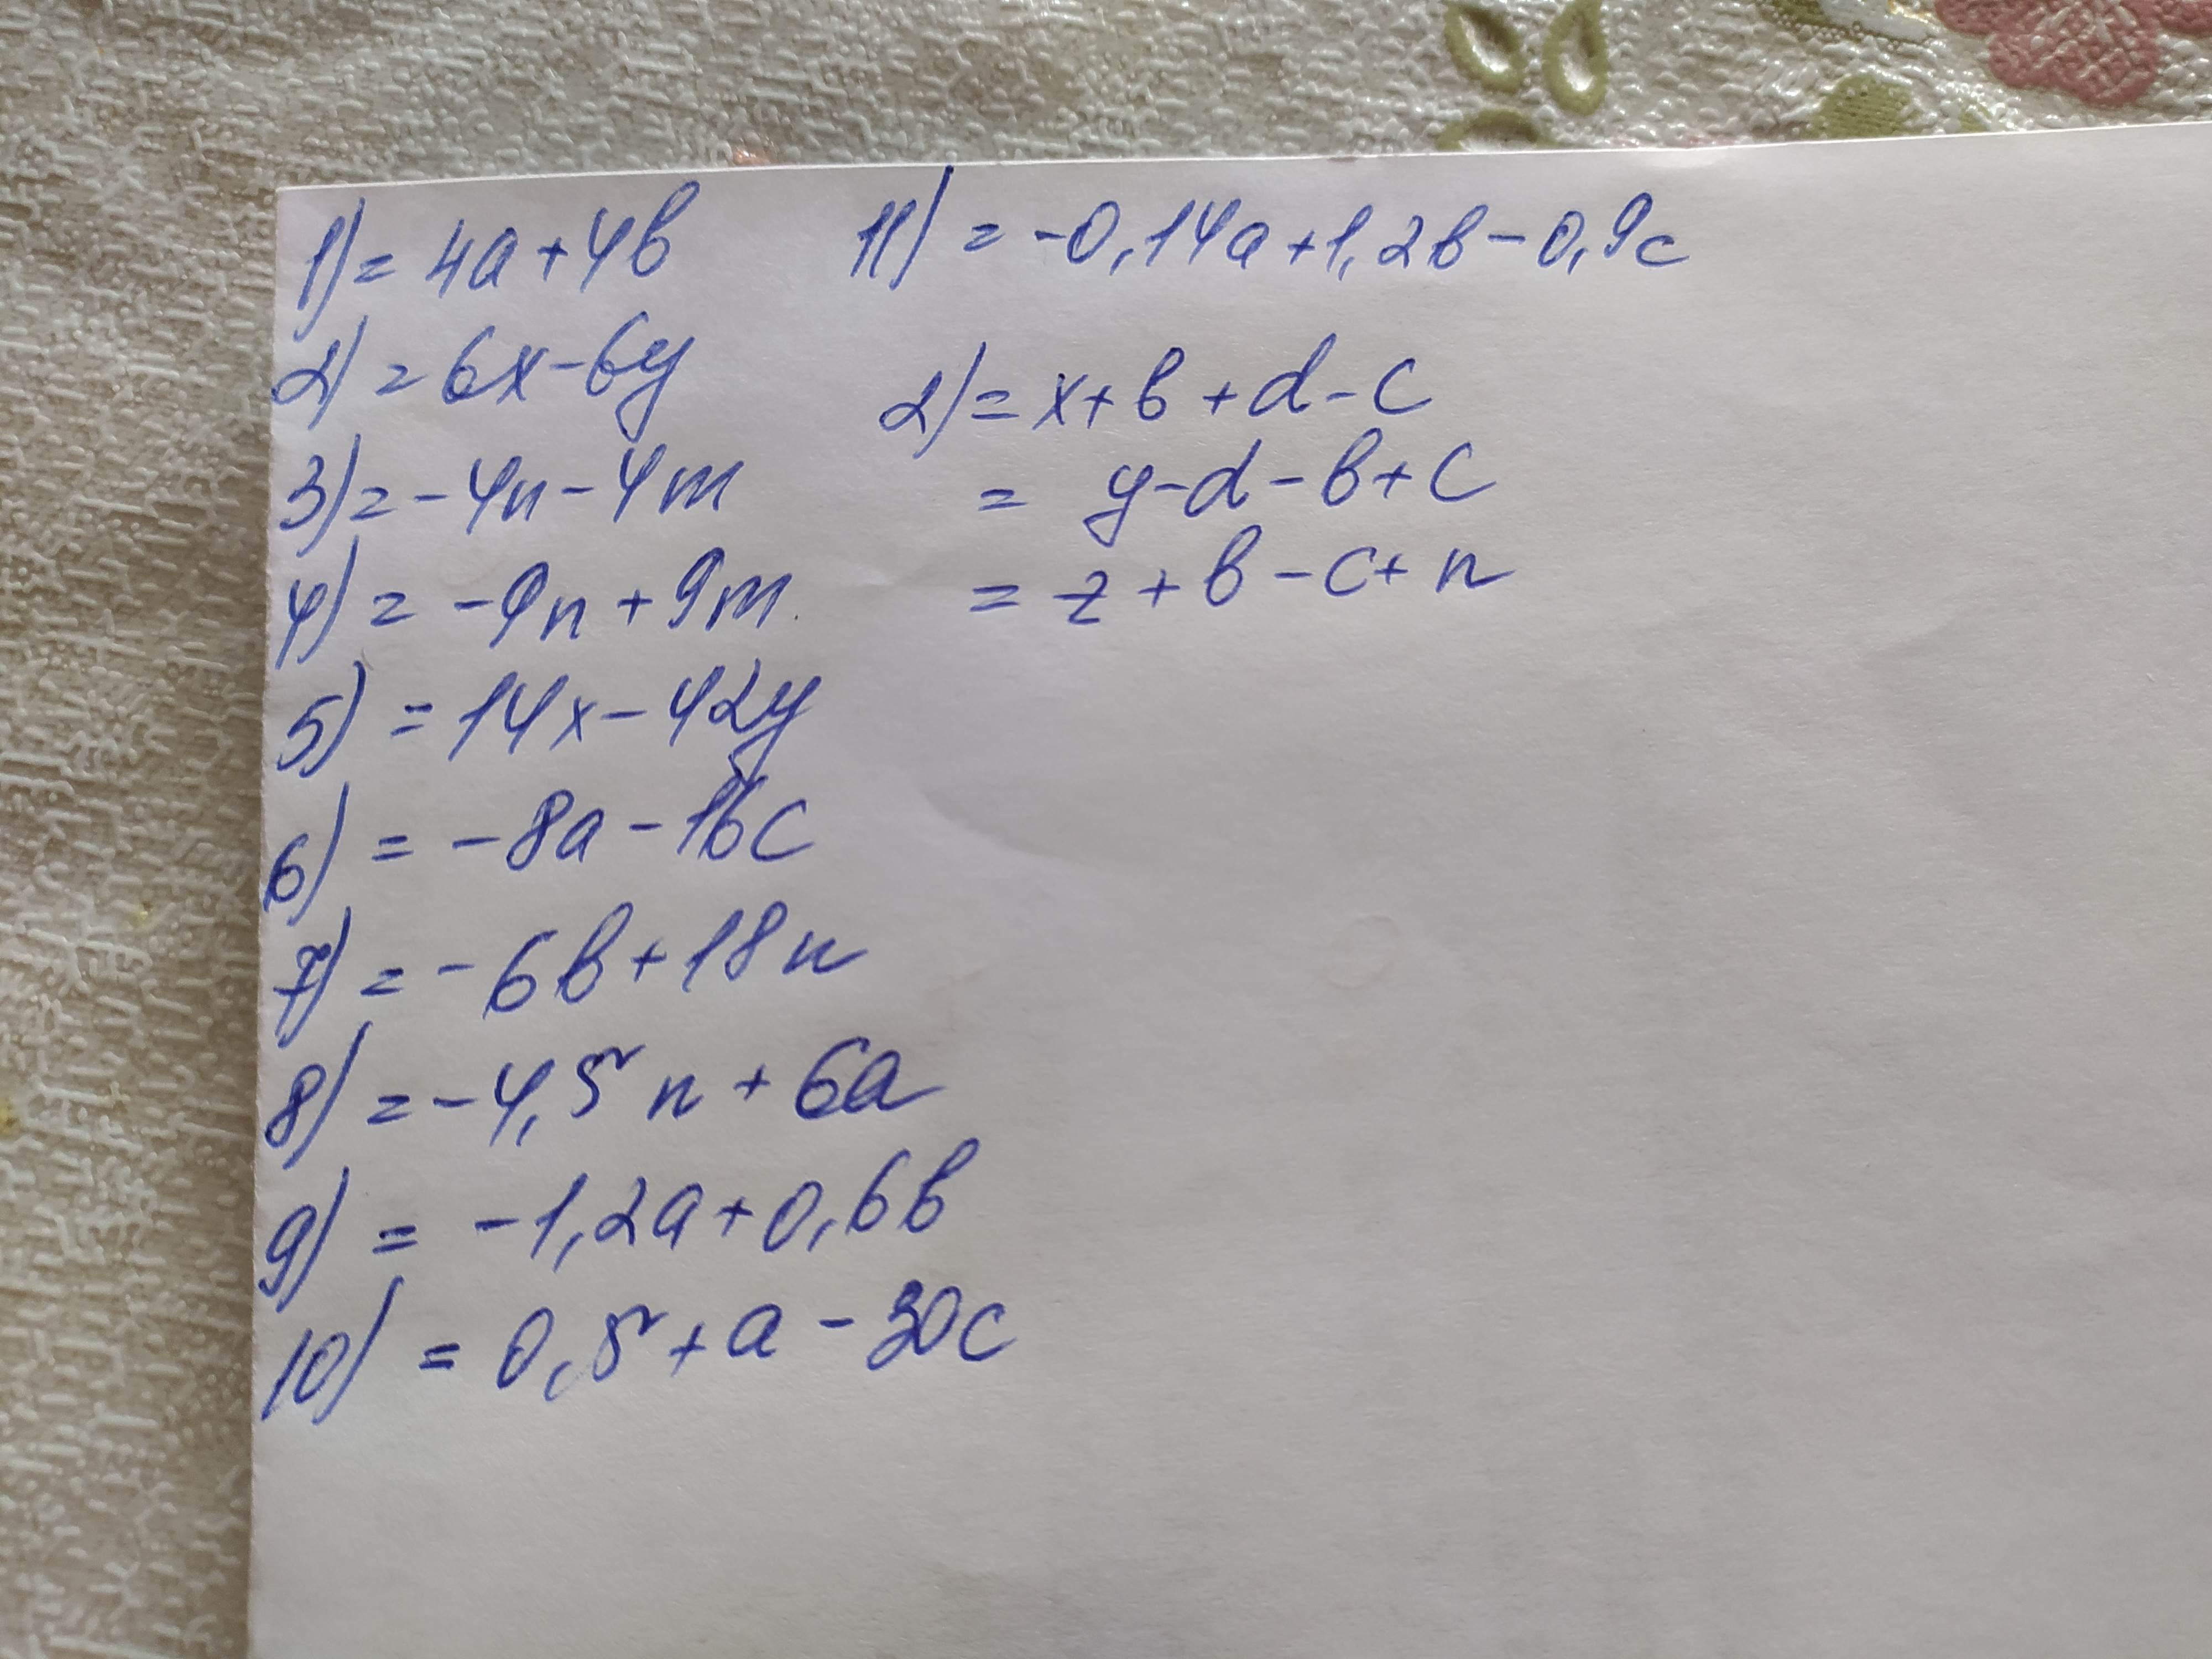 1) = 4a+4b
2) = 6x-6y
3) = -4n-4m
4) = -9n+9m
5) = 14x-42y
6) = -8a-16c
7) = -6b+18n
8) = -4,5n+6a
9) = -1,2a+0,6b
10) = 0,5+a-30c
11) = -0,14a+1,2b-0,9c
2) = x+b+d-c
= y-d-b+c
= z+b-c+n